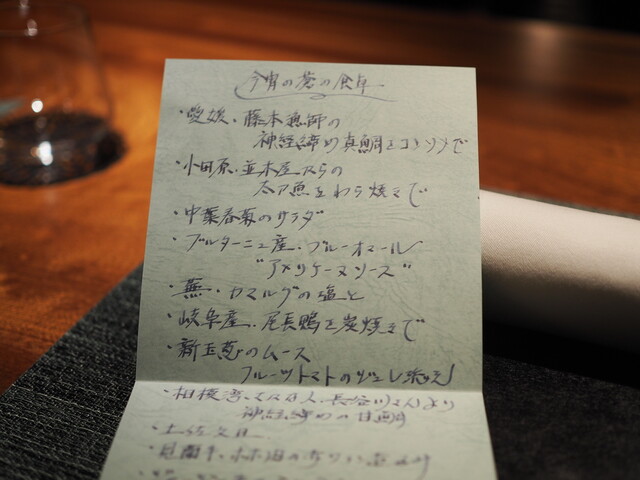 今宵の蒼の食卓
・愛媛・藤本漁師の
神経締め真鯛をコンソメで
・小田原・並木屋さんの
太刀魚をわら焼きで
・中葉春菊のサラダ
・ブルターニュ産・ブルーオマール
"アメリケーヌソース"
・蕪・カマルグの塩と
・岐阜産・尾長鴨を炭焼きで
・新玉葱のムース
フルーツトマトのジュレ添え
・相模湾・長谷川さんより
神経締めの甘鯛
・土佐文旦